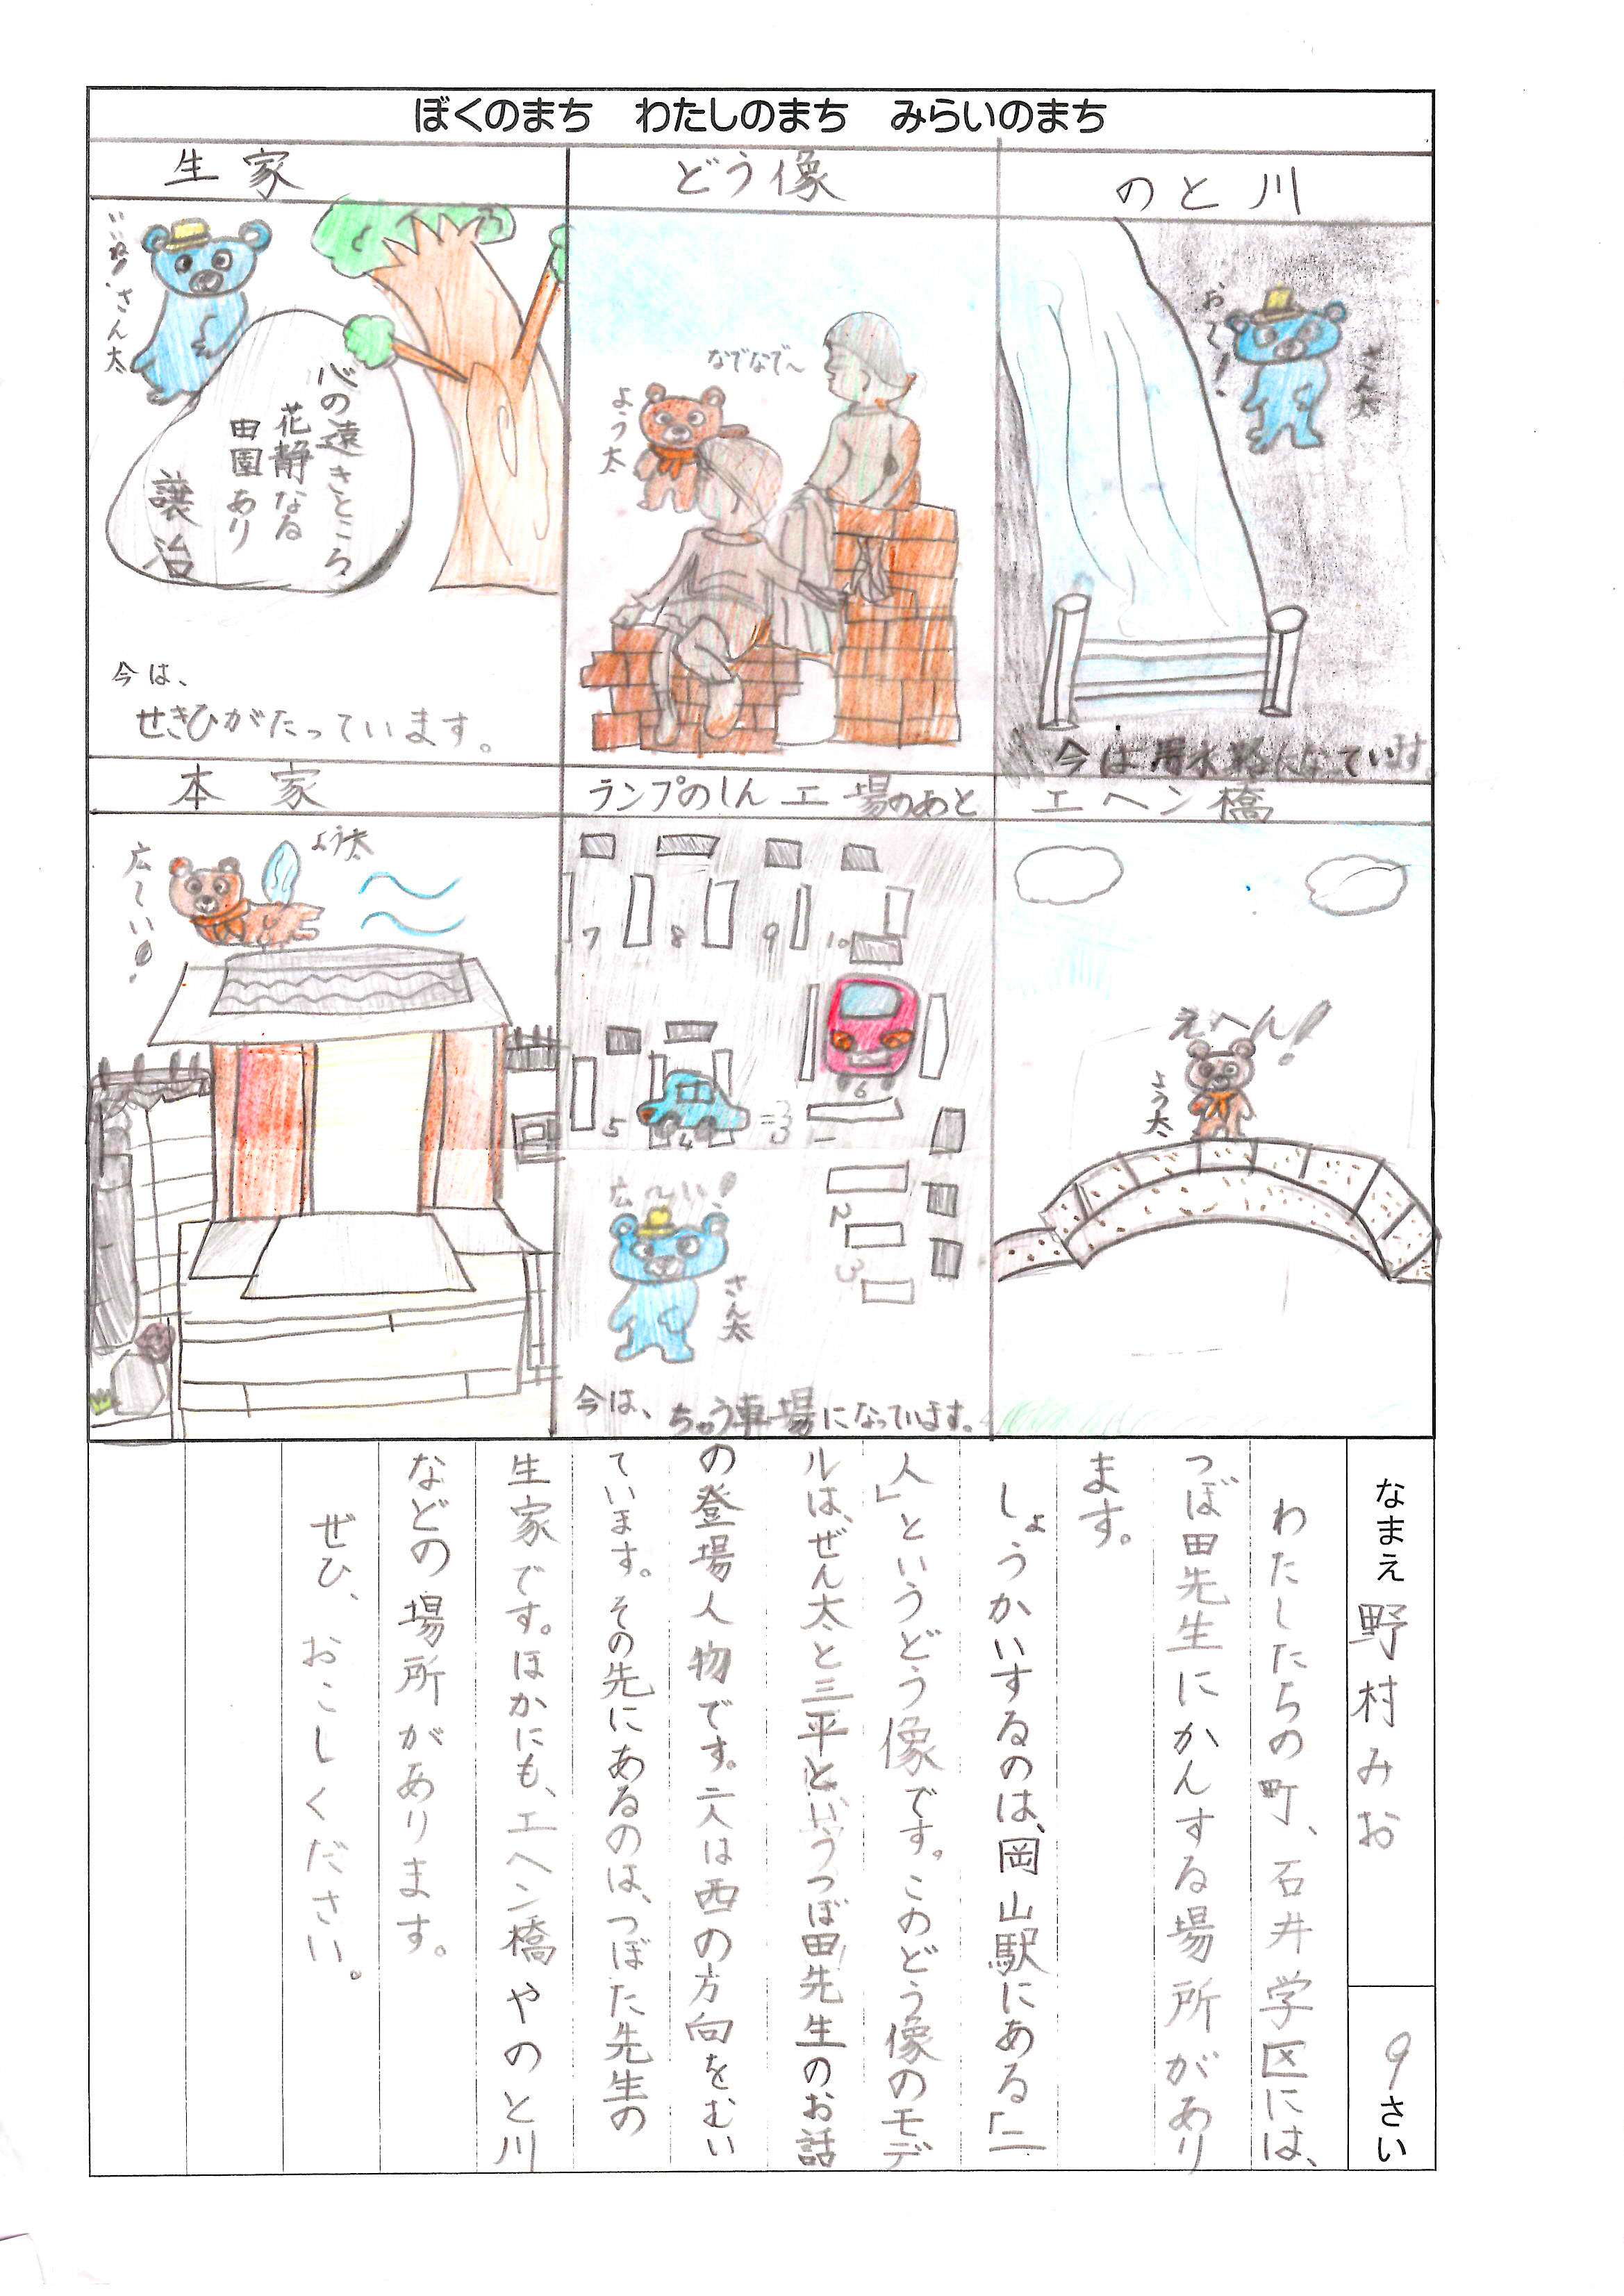 ぼくのまち　わたしのまち　みらいのまち
生家
いいね!
さん太
心の遠きところ
花静なる
田園あり
譲治
今は、
せきひがたっています。
どう像
なでなで〜
よう太
のと川
お〜!
さん太
今は用水路になっています
本家
広〜い!
よう太
ランプのしん工場のあと
7 8 9 10
5 4 6
1
2
3
広〜い!
さん太
今は、ちゅう車場になっています。
エヘン橋
えへん!
よう太
なまえ 野村みお
9さい
わたしたちの町、石井学区には、
つぼ田先生にかんする場所があり
ます。
しょうかいするのは、岡山駅にある「二
人」というどう像です。このどう像のモデ
ルは、ぜん太と三平というつぼ田先生のお話
の登場人物です。二人は西の方向をむい
ています。その先にあるのは、つぼた先生の
生家です。ほかにも、エヘン橋やのと川
などの場所があります。
ぜひ、おこしください。